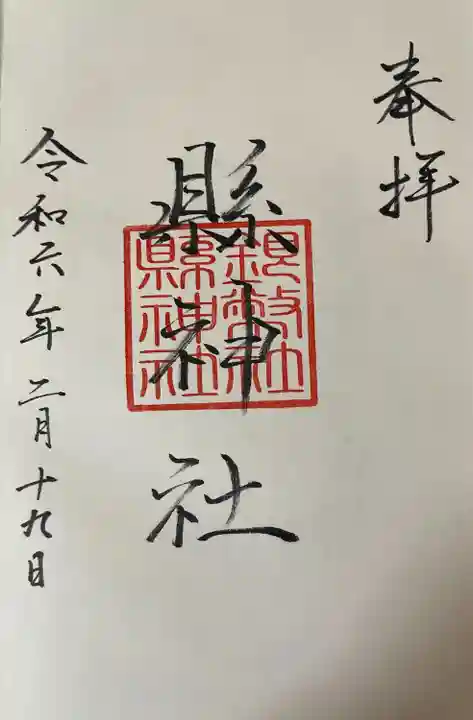 奉拝
縣神社
令和六年二月十九日
縣神社